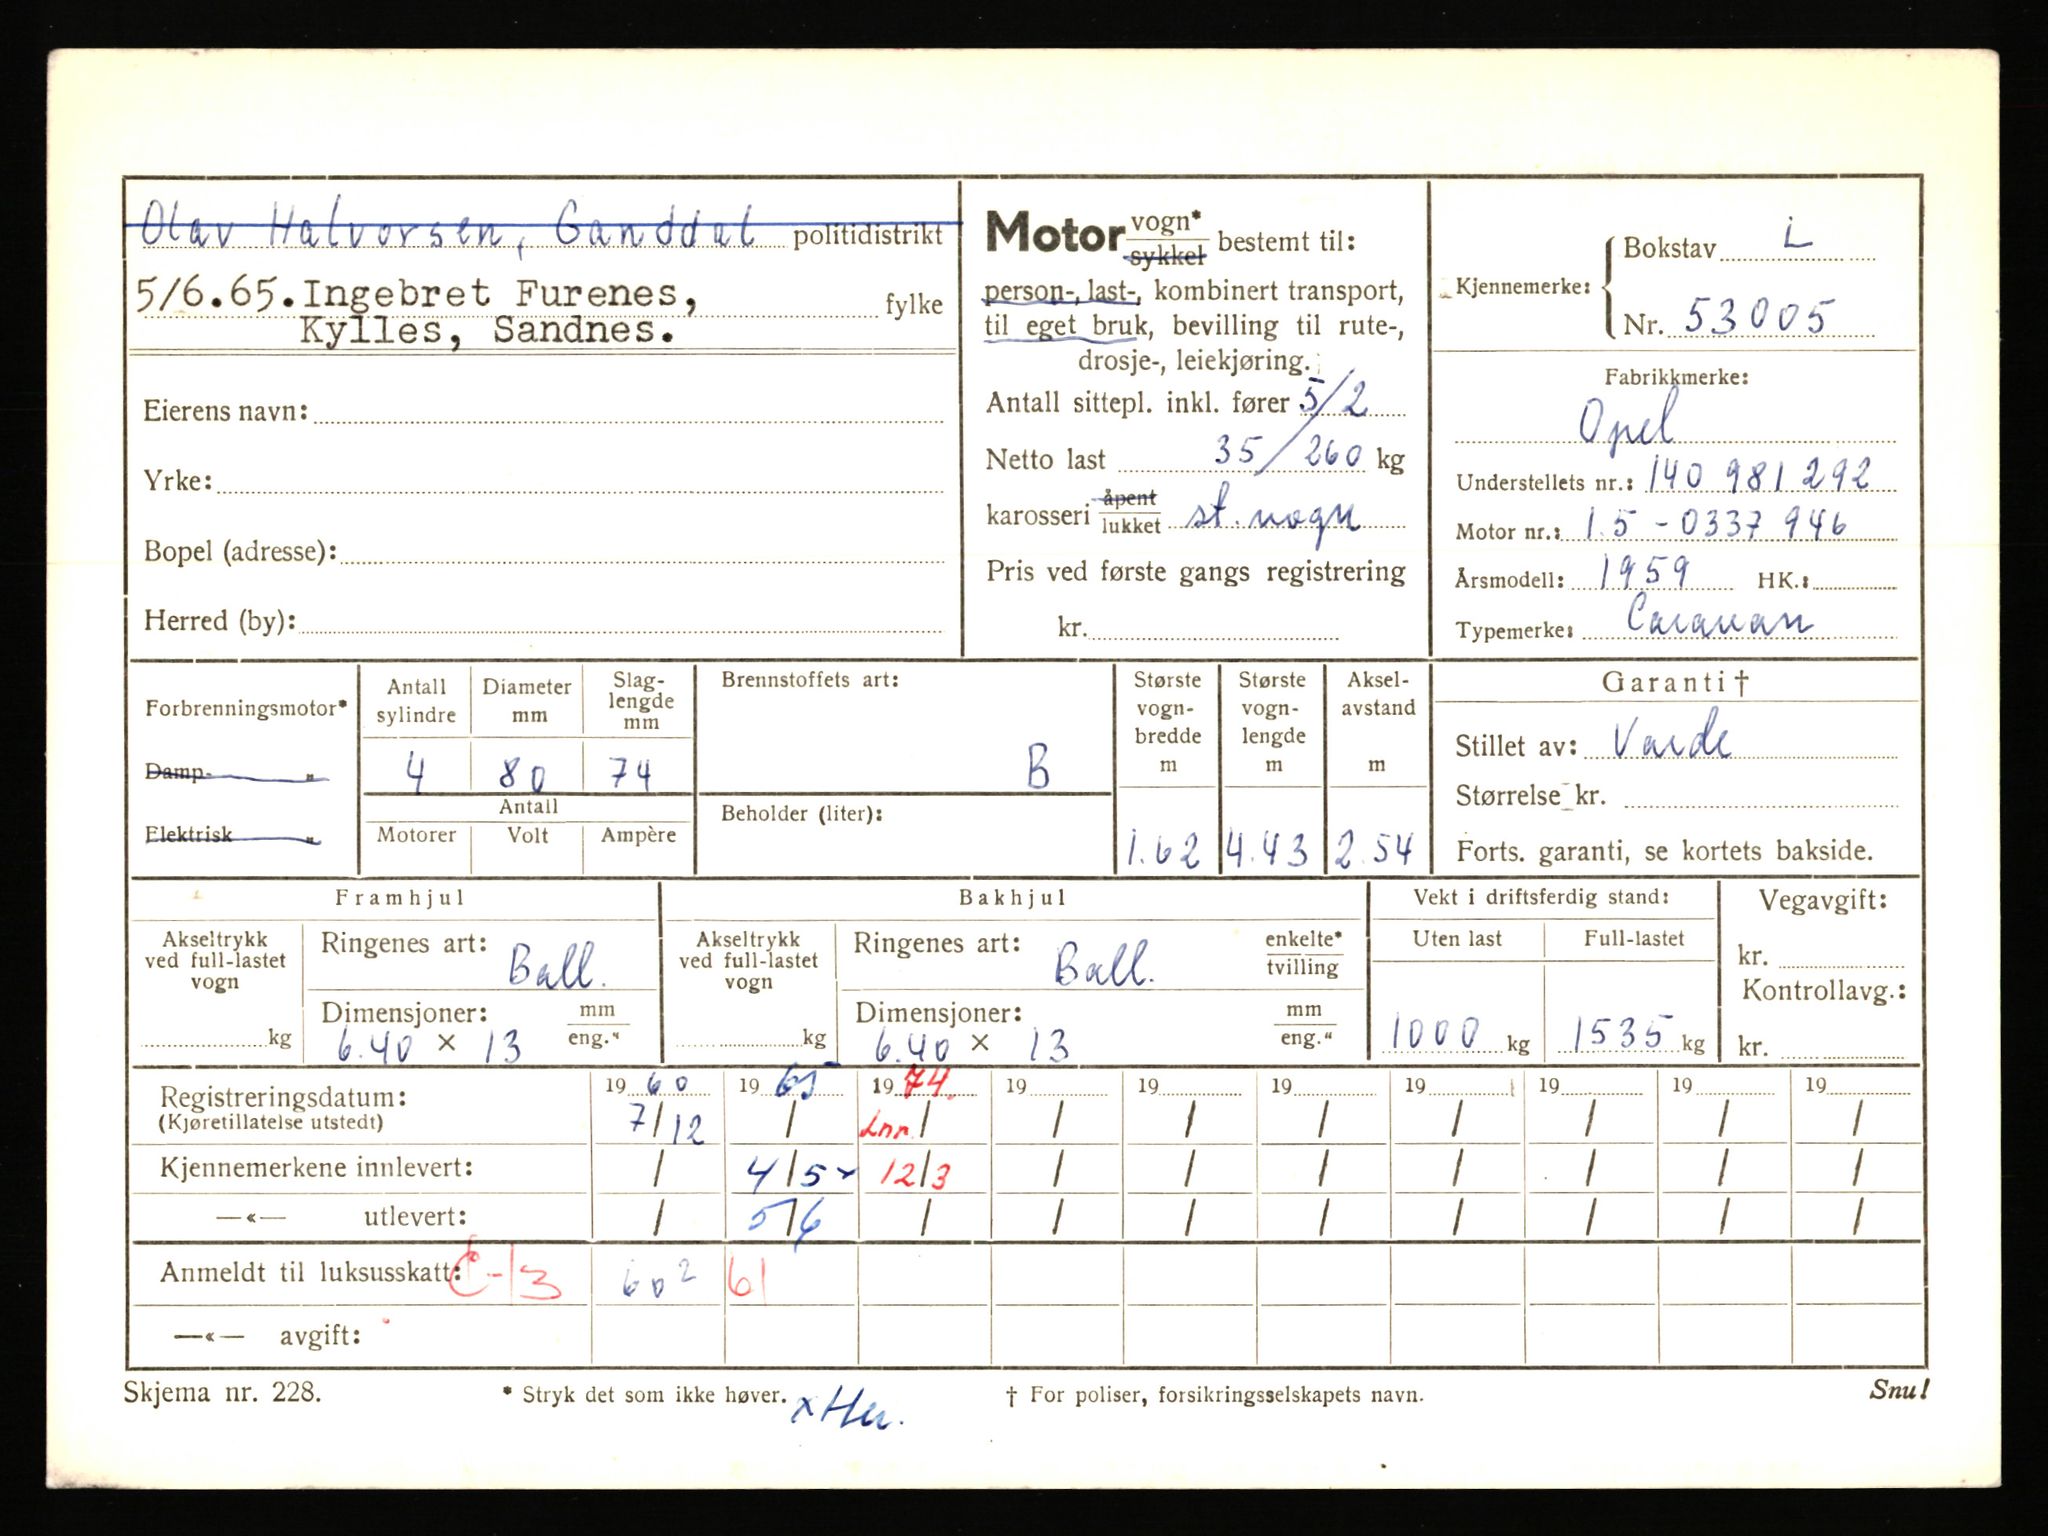 Olav Halvorsen, Ganddal politidistrikt
5/6.65. Ingebret Furenes, fylke
Kylles, Sandnes.
Eierens navn:
Yrke:
Bopel (adresse):
Herred (by):
Motor vogn* sykkel bestemt til:
person-, last-, kombinert transport,
til eget bruk, bevilling til rute-,
drosje-, leiekjøring.
Antall sittepl. inkl. fører 5/2
Netto last 35/260 kg
karosseri åpent lukket st. vogn
Pris ved første gangs registrering
kr.
Kjennemerke: Bokstav L
Nr. 53005
Fabrikkmerke:
Opel
Understellets nr.: 140 981 292
Motor nr.: 1.5 - 0337 946
Årsmodell: 1959 HK.:
Typemerke: Caravan
Forbrenningsmotor*
Damp- "
Elektrisk "
Antall sylindre
4
Diameter mm
80
Slag-
lengde
mm
74
Antall
Motorer Volt Ampère
Brennstoffets art:
B
Beholder (liter):
Største
vogn-
bredde
m
1.62
Største
vogn-
lengde
m
4.43
Aksel-
avstand
m
2.54
Garanti †
Stillet av: Varde
Størrelse kr.
Forts. garanti, se kortets bakside.
Framhjul
Akseltrykk
ved full-lastet
vogn
kg
Ringenes art: Ball.
Dimensjoner: mm eng."
6.40 × 13
Bakhjul
Akseltrykk
ved full-lastet
vogn
kg
Ringenes art: Ball. enkelte* tvilling
Dimensjoner: mm eng."
6.40 × 13
Vekt i driftsferdig stand:
Uten last Full-lastet
1000 kg 1535 kg
Vegavgift:
kr.
Kontrollavg.:
kr.
Registreringsdatum: 19 60 19 65 19 74 19 19 19 19 19 19 19
(Kjøretillatelse utstedt) 7/12 / Lnn / / / / / / / /
Kjennemerkene innlevert: / 4/5 x 12/3 / / / / / / /
—«— utlevert: / 5/6 / / / / / / / /
Anmeldt til luksusskatt: E-13 60² 61
—«— avgift:
Skjema nr. 228. * Stryk det som ikke høver. † For poliser, forsikringsselskapets navn. Snu!